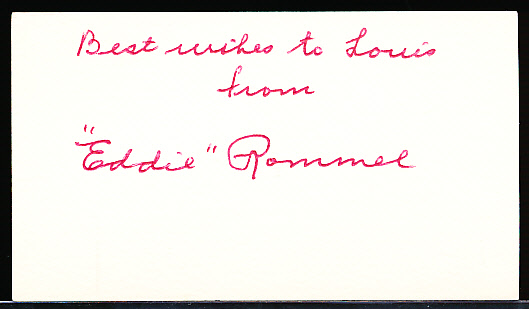 Best wishes to Louis
from
"Eddie" Rommel